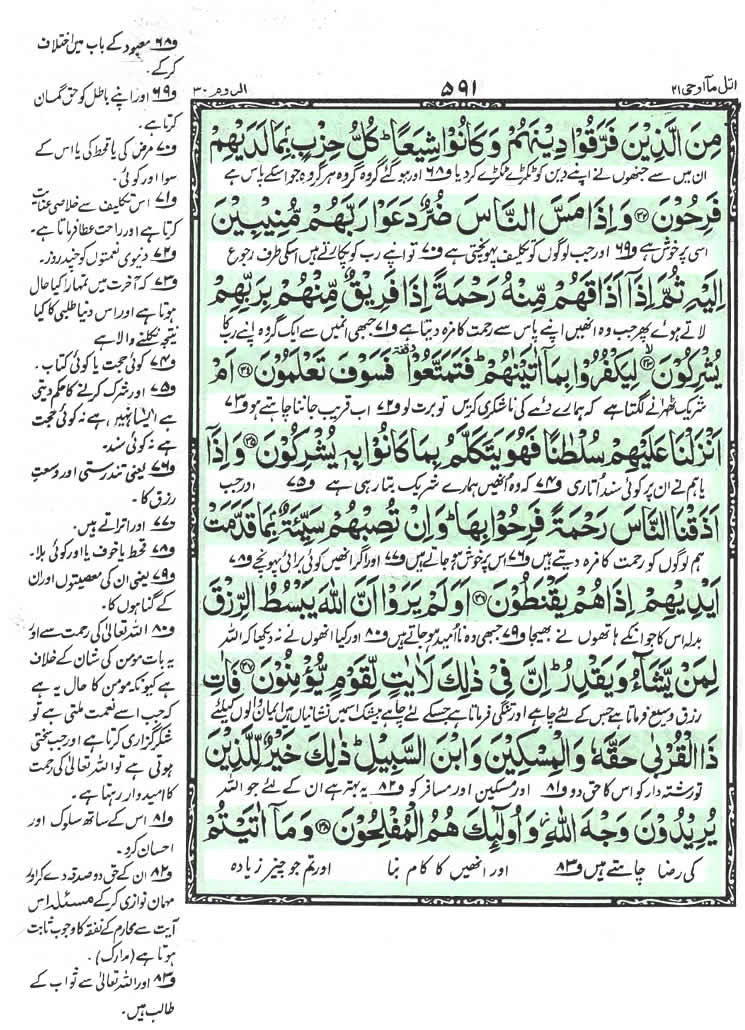 اتل مآ اوحی ۲۱
۵۹۱
الروم ۳۰
مِنَ الَّذِيْنَ فَرَّقُوْا دِيْنَهُمْ وَكَانُوْا شِيَعًا ؕ كُلُّ حِزْبٍۭ بِمَا لَدَيْهِمْ
ان میں سے جنھوں نے اپنے دین کو ٹکڑے ٹکڑے کردیا و۶۸ اور ہوگئے گروہ گروہ ہر گروہ جو اسکے پاس ہے
فَرِحُوْنَ ﴿۳۲﴾ وَاِذَا مَسَّ النَّاسَ ضُرٌّ دَعَوْا رَبَّهُمْ مُّنِيْبِيْنَ
اسی پر خوش ہے و۶۹ اور جب لوگوں کو تکلیف پہونچتی ہے و۷۰ تو اپنے رب کو پکارتے ہیں اسکی طرف رجوع
اِلَيْهِ ثُمَّ اِذَاۤ اَذَاقَهُمْ مِّنْهُ رَحْمَةً اِذَا فَرِيْقٌ مِّنْهُمْ بِرَبِّهِمْ
لاتے ہوئے پھر جب وہ انھیں اپنے پاس سے رحمت کا مزہ دیتا ہے و۷۱ جبھی انمیں سے ایک گروہ اپنے رب کا
يُشْرِكُوْنَ ﴿۳۳﴾ لِيَكْفُرُوْا بِمَاۤ اٰتَيْنٰهُمْ ؕ فَتَمَتَّعُوْا وقفة فَسَوْفَ تَعْلَمُوْنَ ﴿۳۴﴾ اَمْ
شریک ٹھہرانے لگتا ہے کہ ہمارے دئے کی ناشکری کریں تو برت لو و۷۲ اب قریب جاننا چاہتے ہو و۷۳
اَنْزَلْنَا عَلَيْهِمْ سُلْطٰنًا فَهُوَ يَتَكَلَّمُ بِمَا كَانُوْا بِهٖ يُشْرِكُوْنَ ﴿۳۵﴾ وَاِذَاۤ
یا ہم نے ان پر کوئی سند اتاری و۷۴ کہ وہ انھیں ہمارے شریک بتا رہی ہے و۷۵ اور جب
اَذَقْنَا النَّاسَ رَحْمَةً فَرِحُوْا بِهَا ؕ وَاِنْ تُصِبْهُمْ سَيِّئَةٌۢ بِمَا قَدَّمَتْ
ہم لوگوں کو رحمت کا مزہ دیتے ہیں و۷۶ اس پر خوش ہوجاتے ہیں و۷۷ اور اگر انھیں کوئی برائی پہونچے و۷۸
اَيْدِيْهِمْ اِذَا هُمْ يَقْنَطُوْنَ ﴿۳۶﴾ اَوَلَمْ يَرَوْا اَنَّ اللّٰهَ يَبْسُطُ الرِّزْقَ
بدلہ اس کا جو انکے ہاتھوں نے بھیجا و۷۹ جبھی وہ ناامید ہوجاتے ہیں و۸۰ اور کیا انھوں نے نہ دیکھا کہ اللہ
لِمَنْ يَّشَآءُ وَيَقْدِرُ ؕ اِنَّ فِيْ ذٰلِكَ لَاٰيٰتٍ لِّقَوْمٍ يُّؤْمِنُوْنَ ﴿۳۷﴾ فَاٰتِ
رزق وسیع فرماتا ہے جس کے لئے چاہے اور تنگی فرماتا ہے جسکے لئے چاہے بیشک اسمیں نشانیاں ہیں ایمان والوں کیلئے
ذَا الْقُرْبٰى حَقَّهٗ وَالْمِسْكِيْنَ وَابْنَ السَّبِيْلِ ؕ ذٰلِكَ خَيْرٌ لِّلَّذِيْنَ
تو رشتہ دار کو اس کا حق دو و۸۱ اور مسکین اور مسافر کو و۸۲ یہ بہتر ہے ان کے لئے جو اللہ
يُرِيْدُوْنَ وَجْهَ اللّٰهِ ؗ وَاُولٰٓئِكَ هُمُ الْمُفْلِحُوْنَ ﴿۳۸﴾ وَمَاۤ اٰتَيْتُمْ
کی رضا چاہتے ہیں و۸۳ اور انھیں کا کام بنا اور تم جو چیز زیادہ
و۶۸ معبود کے باب میں اختلاف
کرکے۔
و۶۹ اور اپنے باطل کو حق گمان
کرتا ہے۔
و۷۰ مرض کی یا قحط کی یا اس کے
سوا اور کوئی۔
و۷۱ اس تکلیف سے خلاصی عنایت
کرتا ہے اور راحت عطا فرماتا ہے۔
و۷۲ دنیوی نعمتوں کو چند روز۔
و۷۳ کہ آخرت میں تمہارا کیا حال
ہوتا ہے اور اس دنیا طلبی کا کیا
نتیجہ نکلنے والا ہے
و۷۴ کوئی حجت یا کوئی کتاب۔
و۷۵ اور شرک کرنے کا حکم دیتی
ہے ایسا نہیں ہے نہ کوئی حجت
ہے نہ کوئی سند۔
و۷۶ یعنی تندرستی اور وسعتِ
رزق کا۔
و۷۷ اور اتراتے ہیں۔
و۷۸ قحط یا خوف یا اور کوئی بلا۔
و۷۹ یعنی ان کی معصیتوں اور ان
کے گناہوں کا۔
و۸۰ اللہ تعالیٰ کی رحمت سے اور
یہ بات مومن کی شان کے خلاف
ہے کیونکہ مومن کا حال یہ ہے
کہ جب اسے نعمت ملتی ہے تو
شکر گزاری کرتا ہے اور جب سختی
ہوتی ہے تو اللہ تعالیٰ کی رحمت
کا امیدوار رہتا ہے۔
و۸۱ اس کے ساتھ سلوک اور
احسان کرو۔
و۸۲ ان کے حق دو صدقہ دے کر اور
مہمان نوازی کرکے مسئلہ اس
آیت سے محارم کے نفقہ کا وجوب ثابت
ہوتا ہے (مدارک)۔
و۸۳ اور اللہ تعالیٰ سے ثواب کے
طالب ہیں۔